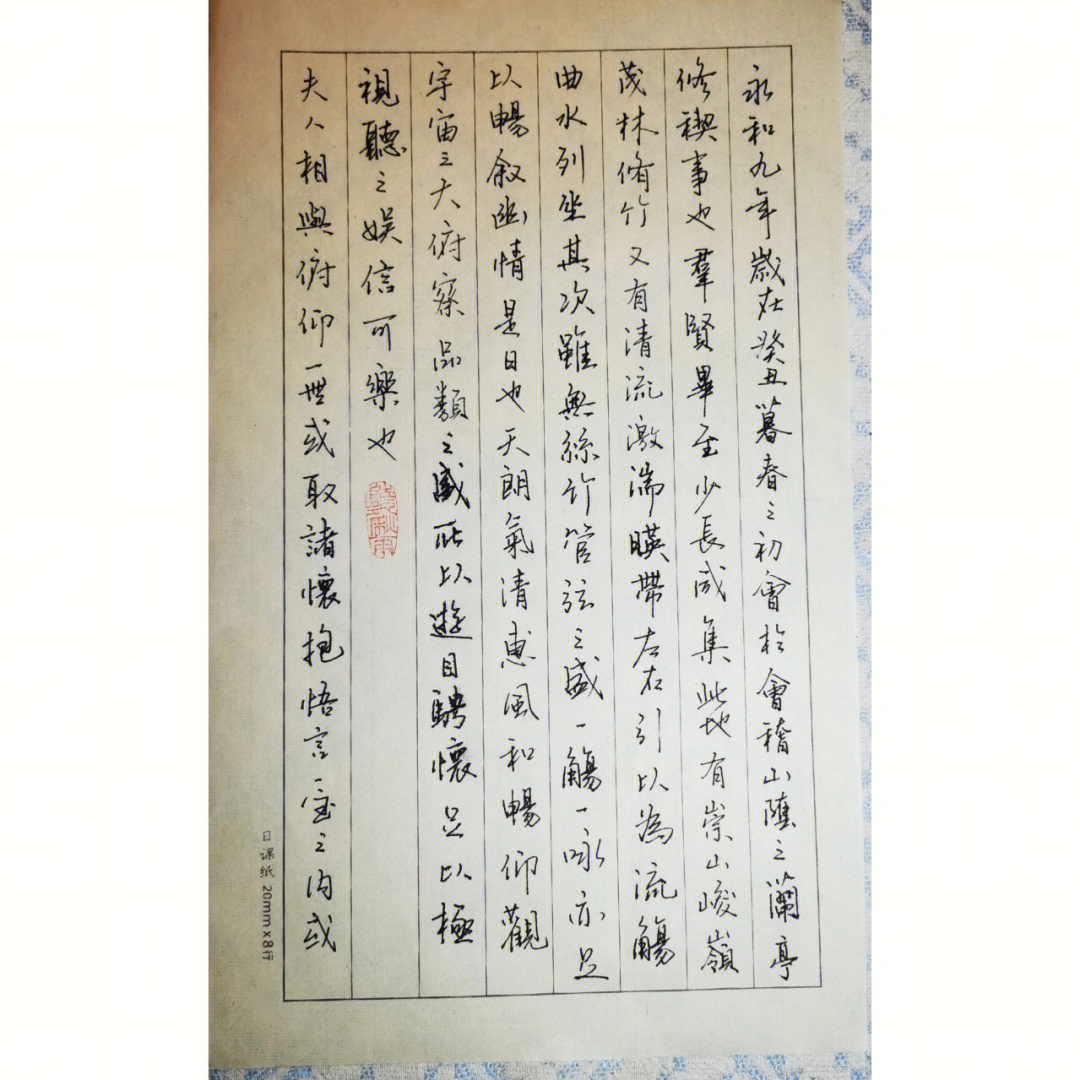 永和九年歲在癸丑暮春之初會於會稽山陰之蘭亭
修禊事也羣賢畢至少長咸集此地有崇山峻嶺
茂林脩竹又有清流激湍暎帶左右引以為流觴
曲水列坐其次雖無絲竹管弦之盛一觴一詠亦足
以暢敘幽情是日也天朗氣清惠風和暢仰觀
宇宙之大俯察品類之盛所以遊目騁懷足以極
視聽之娛信可樂也
夫人相與俯仰一世或取諸懷抱悟言一室之内或
日课纸 20mm×8行